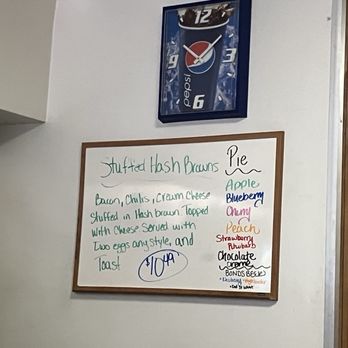 12
9
3
pepsi
6
Stuffed Hash Browns
Bacon, Chilis, Cream Cheese
Stuffed in Hash brown Topped
With Cheese Served with
two eggs any style, and
Toast
$10.49
Pie
Apple
Blueberry
Cherry
Peach
Strawberry
Rhubarb
Chocolate
creme